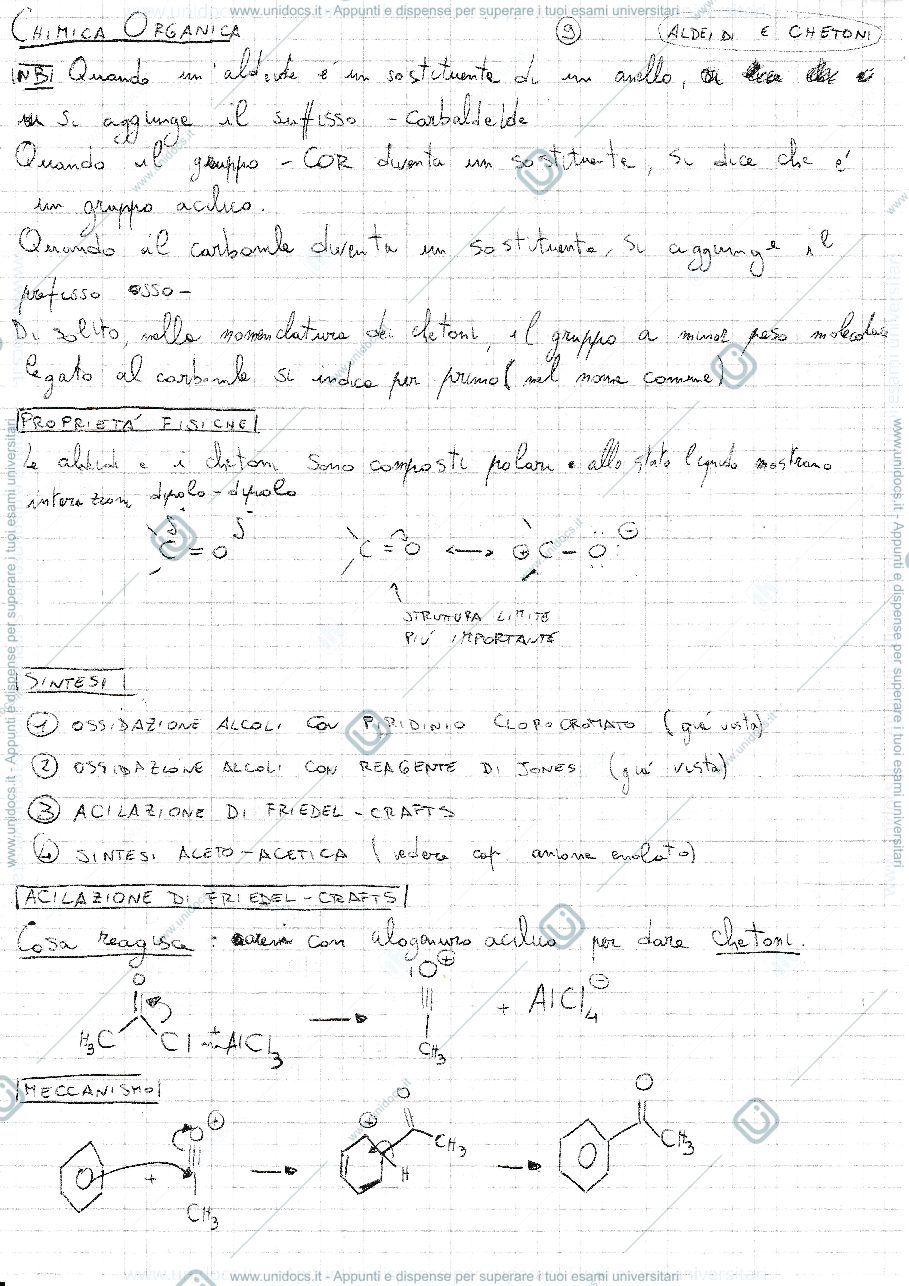 www.unidocs.it - Appunti e dispense per superare i tuoi esami universitari
CHIMICA ORGANICA
9
ALDEIDI E CHETONI
NB Quando un'aldeide é un sostituente di un anello,
si aggiunge il suffisso - Carbaldeide
Quando il gruppo - COR diventa un sostituente, si dice che é
un gruppo acilico.
Quando il carbonile diventa un sostituente, si aggiunge il
prefisso osso-
Di solito, nella nomenclatura dei chetoni, il gruppo a minor peso molecolare
legato al carbonile si indica per primo (nel nome comune)
PROPRIETÁ FISICHE
Le aldeidi e i chetoni sono composti polari e allo stato liquido mostrano
interazioni dipolo-dipolo
δ+ δ-
C = O
C = O ⟷ ⊕ C - O ⊖
STRUTTURA LIMITE
PIÚ IMPORTANTE
SINTESI
1 OSSIDAZIONE ALCOLI CON PIRIDINIO CLOROCROMATO (giá vista)
2 OSSIDAZIONE ALCOLI CON REAGENTE DI JONES (giá vista)
3 ACILAZIONE DI FRIEDEL-CRAFTS
4 SINTESI ACETO-ACETICA (vedere cap. anione enolato)
ACILAZIONE DI FRIEDEL-CRAFTS
Cosa reagisce : areni con alogenuro acilico per dare Chetoni.
O
H3C Cl + AlCl3
→
O ⊕
CH3
+ AlCl4 ⊖
MECCANISMO
+
O ⊕
CH3
→
⊕
O
CH3
H
→
O
CH3
www.unidocs.it - Appunti e dispense per superare i tuoi esami universitari
www.unidocs.it - Appunti e dispense per superare i tuoi esami universitari
www.unidocs.it - Appunti e dispense per superare i tuoi esami universitari